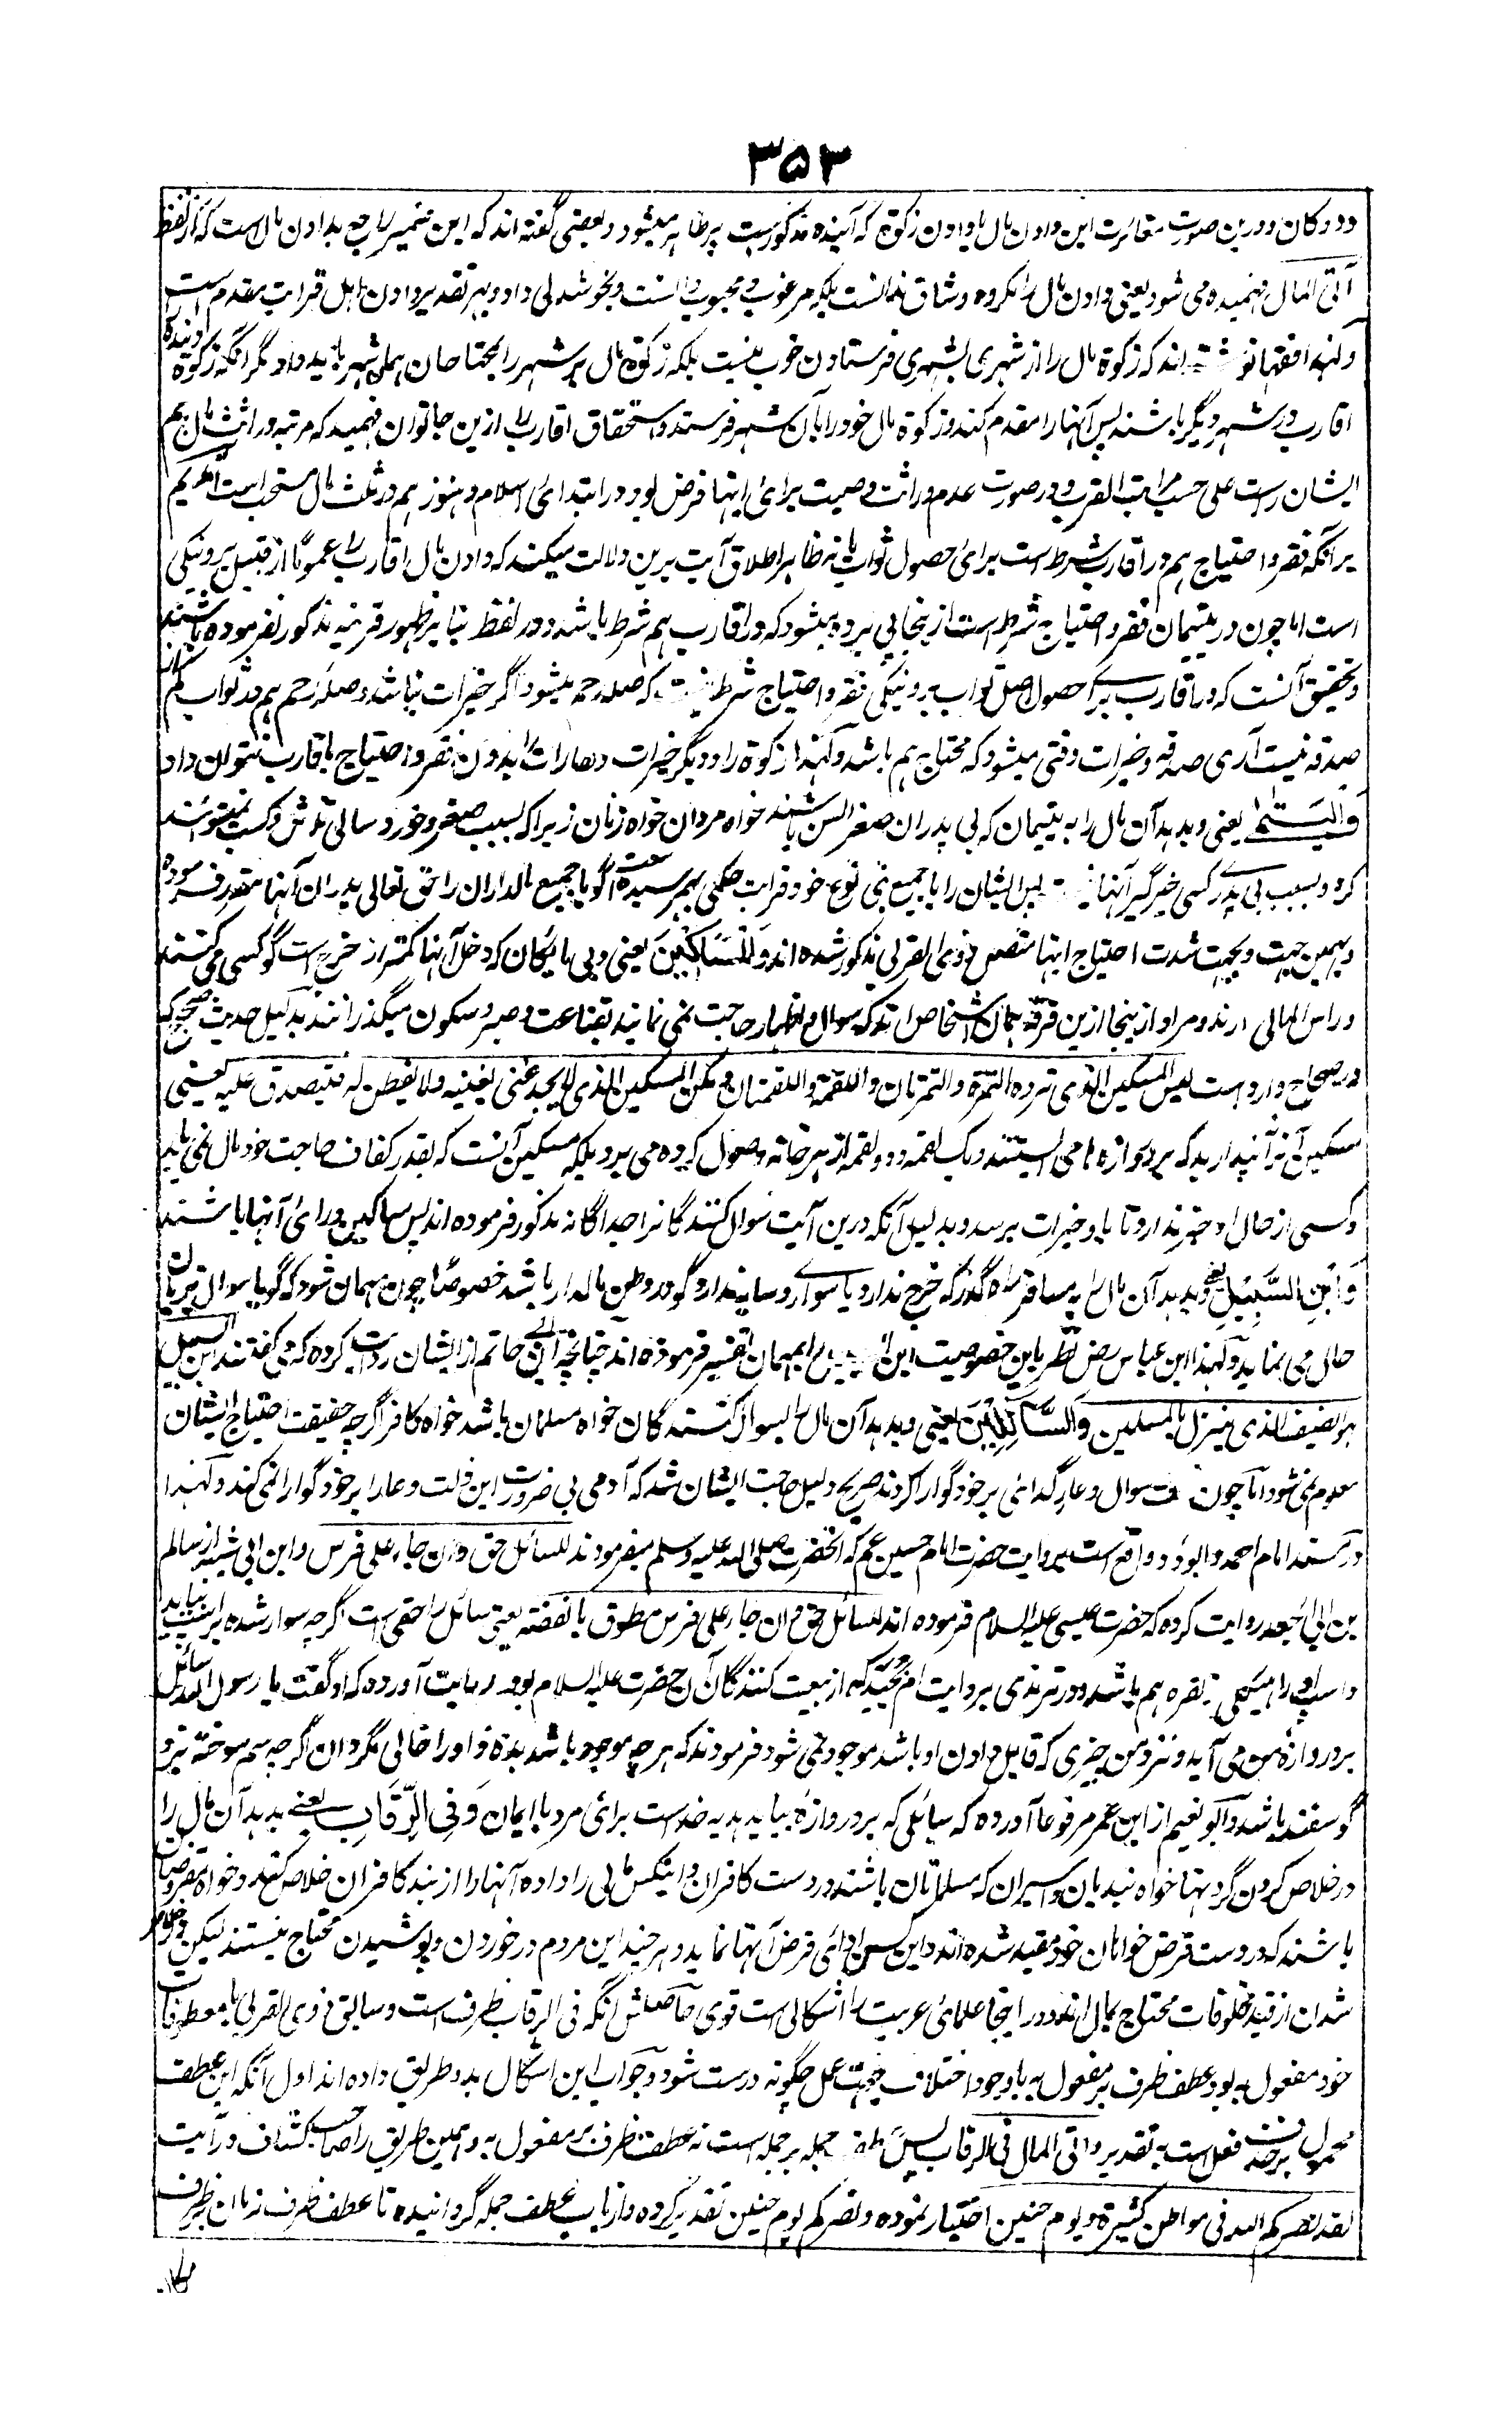 ۳۵۳
دو دکان و درین صورت مغائرت این دادن مال با دادن زکوة که آینده مذکورست پر ظاهر میشود و بعضی گفته اند که این ضمیر راجع بدادن مال است که از لفظ
آتی المال فهمیده می شود یعنی دادن مال را مکروه و شاق ندانست بلکه مرغوب و محبوب دانست و بخوشدلی داد و بهر تقدیر دادن باهل قرابت مقدم است
و لهذا فقها نوشته اند که زکوة مال را از شهری بشهری فرستادن خوب نیست بلکه زکوة مال هر شهر را بمحتاجان همان شهر باید داد مگر آنکه زکوة دهنده
اقارب در شهر دیگر باشند پس آنها را مقدم کند و زکوة مال خود را بآن شهر فرستد و استحقاق اقارب را ازین جا توان فهمید که مرتبه وراثت مال هم
ایشان راست علی حسب مراتب القرب و در صورت عدم وراثت وصیت برای اینها فرض بود در ابتدای اسلام و هنوز هم در ثلث مال مستحب است آمدیم
برآنکه فقر و احتیاج هم در اقارب شرط است برای حصول ثواب یا نه ظاهر اطلاق آیت برین دلالت میکند که دادن مال اقارب را عموماً از قبیل بر و نیکی
است اما چون در یتیمان فقر و احتیاج شرط است ازینجا پی برده میشود که در اقارب هم شرط باشد و در لفظ بنا بر ظهور قرینه مذکور نفرموده باشند
و تحقیق آنست که در اقارب برای حصول اصل ثواب بر و نیکی فقر و احتیاج شرط نیست که صله رحم میشود اگر خیرات نباشد و صله رحم هم در ثواب کم از
صدقه نیست آری صدقه و خیرات وقتی میشود که محتاج هم باشد و لهذا زکوة را و دیگر خیرات و کفارات را بدون فقر و احتیاج باقارب نتوان داد
وَالْیَتٰمٰی یعنی و بدهد آن مال را به یتیمان که بی پدران صغیر السن باشند خواه مردان خواه زنان زیرا که بسبب صغر و خورد سالی تلاش و کسب نمیتوانند
کرد و بسبب بی پدری کسی خبرگیر آنها نیست پس ایشان را با جمیع بنی نوع خود قرابت حکمی بهم رسیده است گویا جمیع مالداران را حق تعالی پدران آنها مقرر فرموده
و بهمین جهت و بجهت شدت احتیاج اینها متصل ذوی القربی مذکور شده اند وَالْمَسَاکِیْنَ یعنی و بی مایگان که دخل آنها کمتر از خرج است گو کسبی می کنند
و راس المالی دارند و مراد ازینجا ازین فرقه همان اشخاص اند که سوال و اظهار حاجت نمی نمایند بقناعت و صبر و سکون میگذرانند بدلیل حدیث صحیح که
در صحاح وارد ست لیس المسکین الذی ترده التمرة والتمرتان واللقمة واللقمتان ولکن المسکین الذی لایجد غنی یغنیه ولا یفطن له فیتصدق علیه یعنی
مسکین آن را نپندارید که بر دروازه ها می ایستند و یک لقمه و دو لقمه از هر خانه وصول کرده می برد بلکه مسکین آنست که بقدر کفاف حاجت خود مال نمی یابد
و کسی از حال او خبر ندارد تا باو خیرات برسد و بدلیل آنکه درین آیت سوال کنندگان را جداگانه مذکور فرموده اند پس مساکین ورای آنها باشند
وَابْنَ السَّبِیْلِ یعنی و بدهد آن مال را به مسافر راه گذر که خرج ندارد یا سواری و سایه ندارد گو در وطن مالدار باشد خصوصًا چون مهمان شود که گویا سوال بزبان
حال می نماید و لهذا ابن عباس رض نظر باین خصوصیت ابن السبیل را بمهمان تفسیر فرموده اند چنانچه ابن ابی حاتم از ایشان روایت کرده که می گفتند ابن السبیل
هو الضیف الذی ینزل بالمسلمین وَالسَّآئِلِیْنَ یعنی و بدهد آن مال را بسوال کنندگان خواه مسلمان باشد خواه کافر اگرچه حقیقت احتیاج ایشان
معلوم نمی شود اما چون سوال و عار گدائی بر خود گوارا کردند صریح دلیل حاجت ایشان شد که آدمی بی ضرورت این ذلت و عار را بر خود گوارا نمی کند و لهذا
در مسند امام احمد و ابو داؤد واقع است بروایت حضرت امام حسین عم که آنحضرت صلی الله علیه وسلم میفرمودند للسائل حق وان جاء علی فرس وابن ابی شیبه از سالم
بن ابی الجعد روایت کرده که حضرت عیسی علیه السلام فرموده اند للسائل حق وان جاء علی فرس مطوق بالفضة یعنی سائل را حقی است اگرچه سوار شده بر اسپ بیاید
و اسپ او را هیکل نقره هم باشد و در ترمذی بروایت ام بجید که از بیعت کنندگان آن حضرت علیه السلام بود روایت آورده که او گفت یا رسول الله سائل
بر دروازه من می آید و نزد من چیزی که قابل دادن او باشد موجود نمی شود فرمودند که هر چه موجود باشد بده و او را خالی مگردان اگرچه سم سوخته بز و
گوسفند باشد و ابو نعیم از ابن عمر مرفوعا آورده که سائلی که بر دروازه بیاید هدیه خداست برای مرد با ایمان وَفِی الرِّقَابِ یعنی بدهد آن مال را
در خلاص کردن گردنها خواه بندیان و اسیران که مسلمانان باشند در دست کافران و اینکس مالی را داده آنها را از بند کافران خلاص کند و خواه مقروضان
باشند که در دست قرض خواهان خود مقید شده اند و این کس ادای قرض آنها نماید و هر چند این مردم در خوردن و پوشیدن محتاج نیستند لیکن در خلاص
شدن از قید مخلوقات محتاج بمال اند و در اینجا علمای عربیت را اشکالی است قوی حاصلش آنکه فی الرقاب ظرف است و سابق ذوی القربی با معطوفات
خود مفعول به بود عطف ظرف بر مفعول به با وجود اختلاف جهت عمل چگونه درست شود و جواب این اشکال بدو طریق داده اند اول آنکه این عطف
محمول بر حذف فعل است به تقدیر و آتی المال فی الرقاب پس عطف جمله بر جمله است نه عطف ظرف بر مفعول به و همین طریق را صاحب کشاف در آیت
لقد نصرکم الله فی مواطن کثیرة ویوم حنین اختیار نموده و نصرکم یوم حنین تقدیر کرده و از باب عطف جمله گردانیده تا عطف ظرف زمان بر ظرف